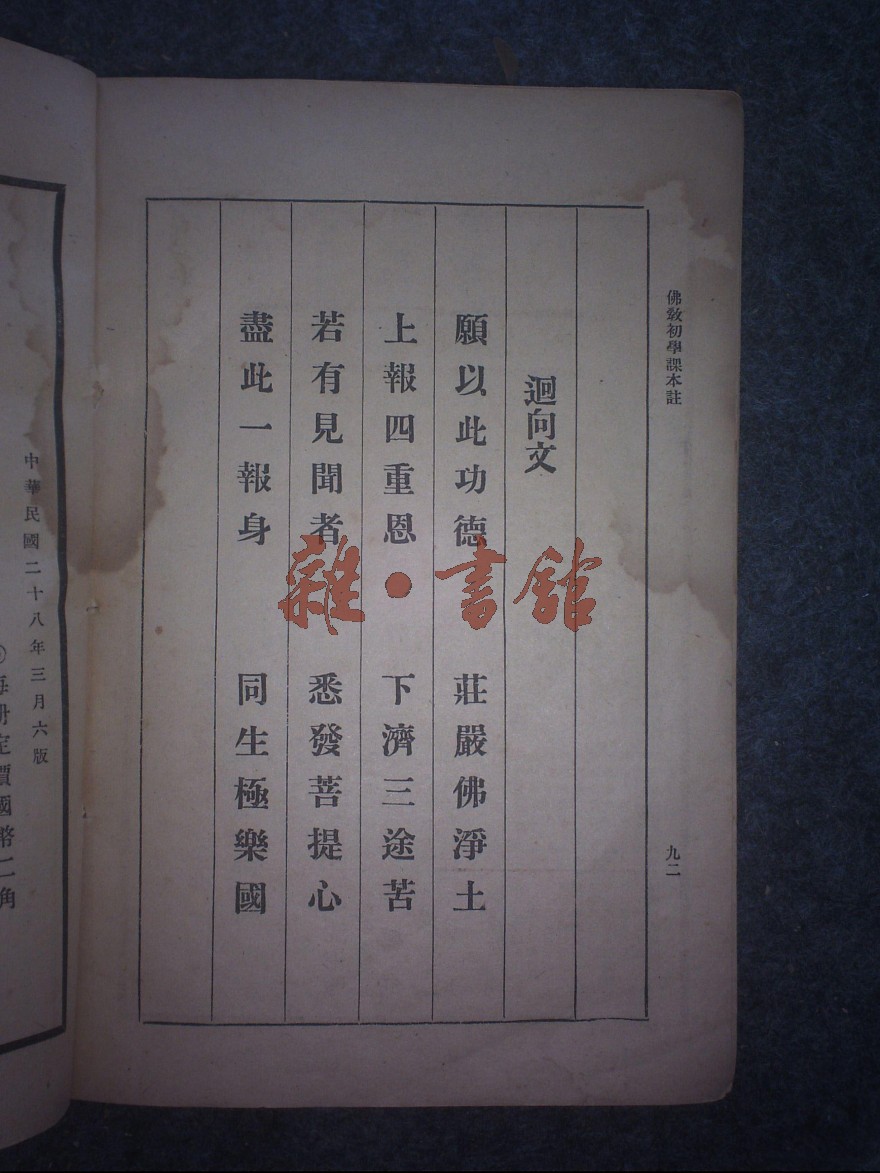 佛敎初學課本註
九二
迴向文
願以此功德　莊嚴佛淨土
上報四重恩　下濟三途苦
若有見聞者　悉發菩提心
盡此一報身　同生極樂國
中華民國二十八年三月六版
每册定價國幣二角
雜•書館